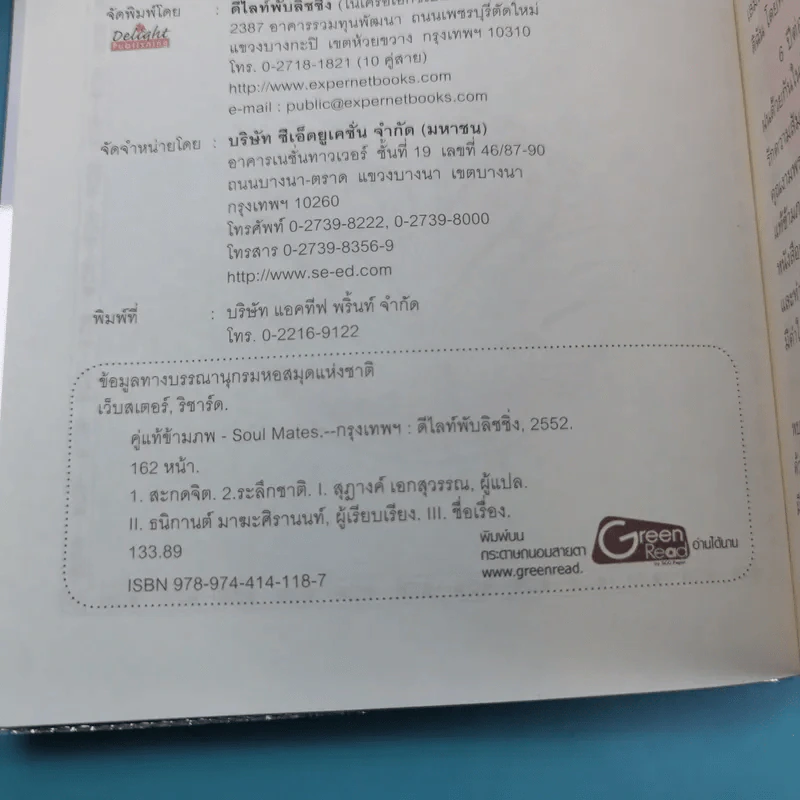 จัดพิมพ์โดย : ดีไลท์พับลิชชิ่ง
Delight
Publishing
2387 อาคารรวมทุนพัฒนา ถนนเพชรบุรีตัดใหม่
แขวงบางกะปิ เขตห้วยขวาง กรุงเทพฯ 10310
โทร. 0-2718-1821 (10 คู่สาย)
http://www.expernetbooks.com
e-mail : public@expernetbooks.com
จัดจำหน่ายโดย : บริษัท ซีเอ็ดยูเคชั่น จำกัด (มหาชน)
อาคารเนชั่นทาวเวอร์ ชั้นที่ 19 เลขที่ 46/87-90
ถนนบางนา-ตราด แขวงบางนา เขตบางนา
กรุงเทพฯ 10260
โทรศัพท์ 0-2739-8222, 0-2739-8000
โทรสาร 0-2739-8356-9
http://www.se-ed.com
พิมพ์ที่ : บริษัท แอคทีฟ พริ้นท์ จำกัด
โทร. 0-2216-9122
ข้อมูลทางบรรณานุกรมหอสมุดแห่งชาติ
เว็บสเตอร์, ริชาร์ด.
คู่แท้ข้ามภพ - Soul Mates.--กรุงเทพฯ : ดีไลท์พับลิชชิ่ง, 2552.
162 หน้า.
1. สะกดจิต. 2.ระลึกชาติ. I. สุฎางค์ เอกสุวรรณ, ผู้แปล.
II. ธนิกานต์ มาฆะศิรานนท์, ผู้เรียบเรียง. III. ชื่อเรื่อง.
133.89
ISBN 978-974-414-118-7
พิมพ์บน
กระดาษถนอมสายตา
www.greenread.
Green
Read
by SCG Paper
อ่านได้นาน